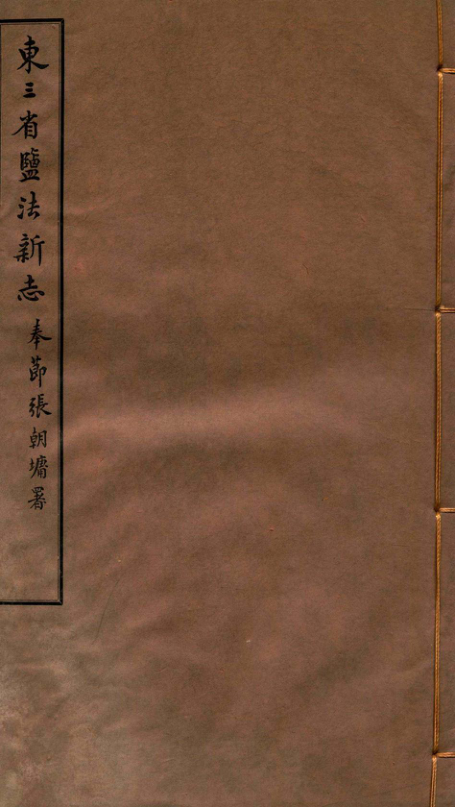 東三省鹽法新志 奉節張朝墉署